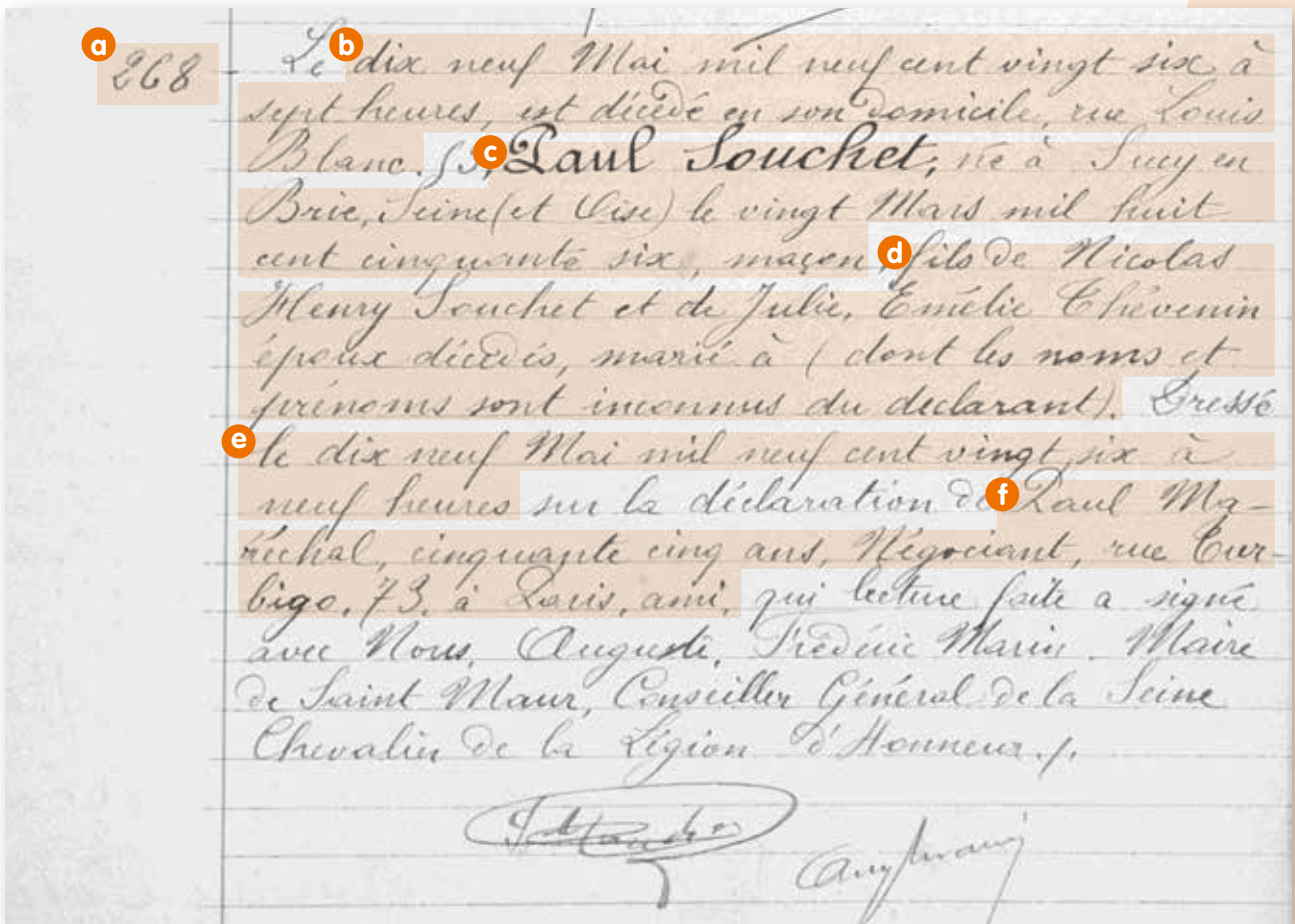 a
268
b
Le dix neuf Mai mil neuf cent vingt six à
sept heures, est décédé en son domicile, rue Louis
Blanc.
c
Paul Souchet, né à Sucy en
Brie, Seine (et Oise) le vingt Mars mil huit
cent cinquante six, maçon,
d
fils de Nicolas
Henry Souchet et de Julie, Emélie Thévenin
époux décédés, marié à (dont les noms et
prénoms sont inconnus du declarant). Dressé
e
le dix neuf Mai mil neuf cent vingt six à
neuf heures sur la déclaration de
f
Paul Ma-
réchal, cinquante cinq ans, Négociant, rue Tur-
bigo, 73, à Paris, ami, qui lecture faite a signé
avec Nous, Auguste, Frédéric Marin. Maire
de Saint Maur, Conseiller Général de la Seine
Chevalier de la Légion d'Honneur./.